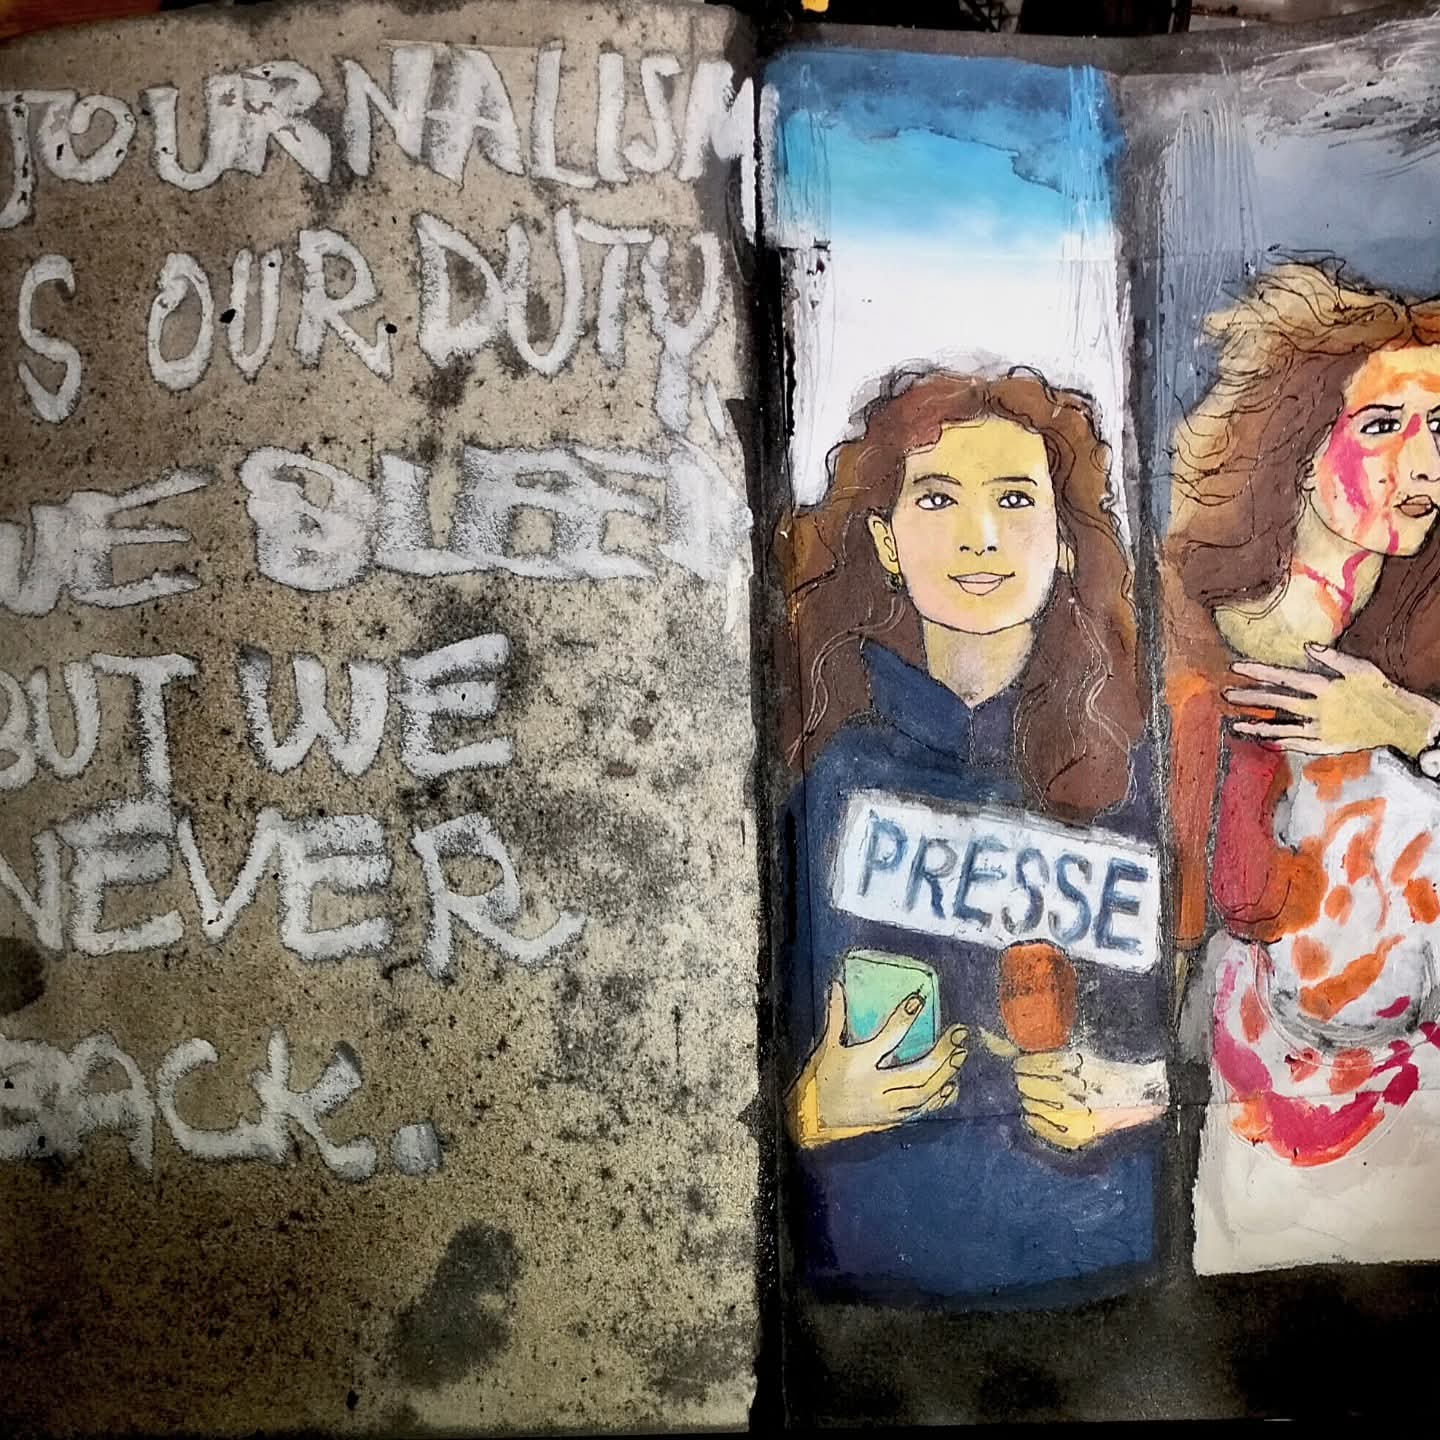 JOURNALISM
S OUR DUTY,
WE BLEED
BUT WE
NEVER
BACK.
PRESSE